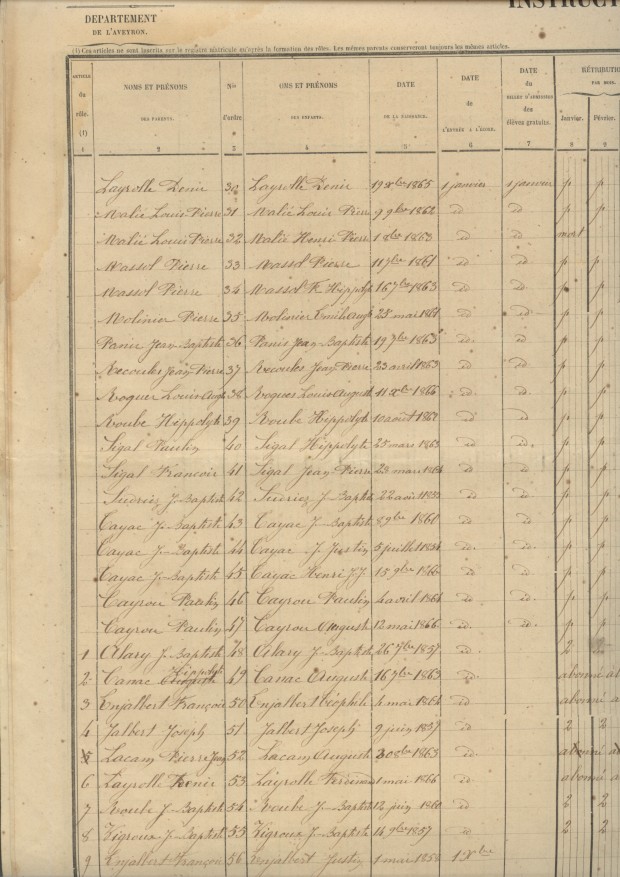 INSTRUCT
DEPARTEMENT
DE L'AVEYRON.
(1) Ces articles ne sont inscrits sur le registre matricule qu'après la formation des rôles. Les mêmes parents conserveront toujours les mêmes articles.
ARTICLE du rôle. (1) NOMS ET PRÉNOMS DES PARENTS. Nos d'ordre OMS ET PRÉNOMS DES ENFANTS. DATE DE LA NAISSANCE. DATE de L'ENTRÉE A L'ÉCOLE. DATE du BILLET D'ADMISSION des élèves gratuits. RÉTRIBUTI PAR MOIS. Janvier. Février.
1 2 3 4 5 6 7 8 9
Layrolle Denis 30 Layrolle Denis 19 Xbre 1865 1 janvier 1 janvier p p
Malié Louis Pierre 31 Malié Louis Pierre 9 9bre 1862 id id. p p
Malié Louis Pierre 32 Malié Henri Pierre 1 8bre 1863 id id. mort
Massol Pierre 33 Massol Pierre 11 7bre 1861 id id. p p
Massol Pierre 34 Massol F. Hippolyte 16 7bre 1863 id id. p p
Molinier Pierre 35 Molinier Emile Aug 25 mai 1861 id. id. p p
Panis Jean-Baptiste 36 Panis Jean-Baptiste 19 7bre 1863 id. id. p p
Recoules Jean Pierre 37 Recoules Jean Pierre 23 avril 1863 id id p p
Roques Louis Aug 38 Roques Louis Auguste 11 Xbre 1866 id. id. p p
Roube Hippolyte 39 Roube Hippolyte 10 août id id p p
Sigal Paulin 40 Sigal Hippolyte 25 mars 1863 id id. p p
Sigal Francois 41 Sigal Jean Pierre 23 mars id id. p p
J-Baptiste 42 J-Baptiste 22 avril id id. p p
Cayac J-Baptiste 43 Cayac J-Baptiste 8 9bre 1861 id id. p p
Cayac J-Baptiste 44 Cayac J. Justin 5 juillet id. id. p p
Cayac J-Baptiste 45 Cayac Henri J.J. 15 9bre 1866 id. id. p p
Cayrou Paulin 46 Cayrou Paulin 4 avril id. id. p p
Cayrou Paulin 47 Cayrou Auguste 12 mai 1866. id. id. p p
1 Alary J-Baptiste 48 Alary J-Baptiste 26 7bre 1857 id. 2
2 Canac Hippolyte 49 Canac Auguste 16 7bre 1863 id. abonné ab
3 Enjalbert François 50 Enjalbert Théophile 4 mai id. abonné ab
4 Jalbert Joseph 51 Jalbert Joseph 9 juin 1857 id 2 2
5 Lacam Pierre Jean 52 Lacam Auguste 30 8bre 1863 id. abonné ab
6 Layrolle Denis 53 Layrolle 1 mai 1866 id abonné a
7 Roube J-Baptiste 54 Roube J-Baptiste 12 juin 1860 id 2 2
8 Vigroux J-Baptiste 55 Vigroux J-Baptiste 14 9bre 1857 id 2 2
9 Enjalbert François 56 Enjalbert Justin 1 mai 1858 1 Xbre